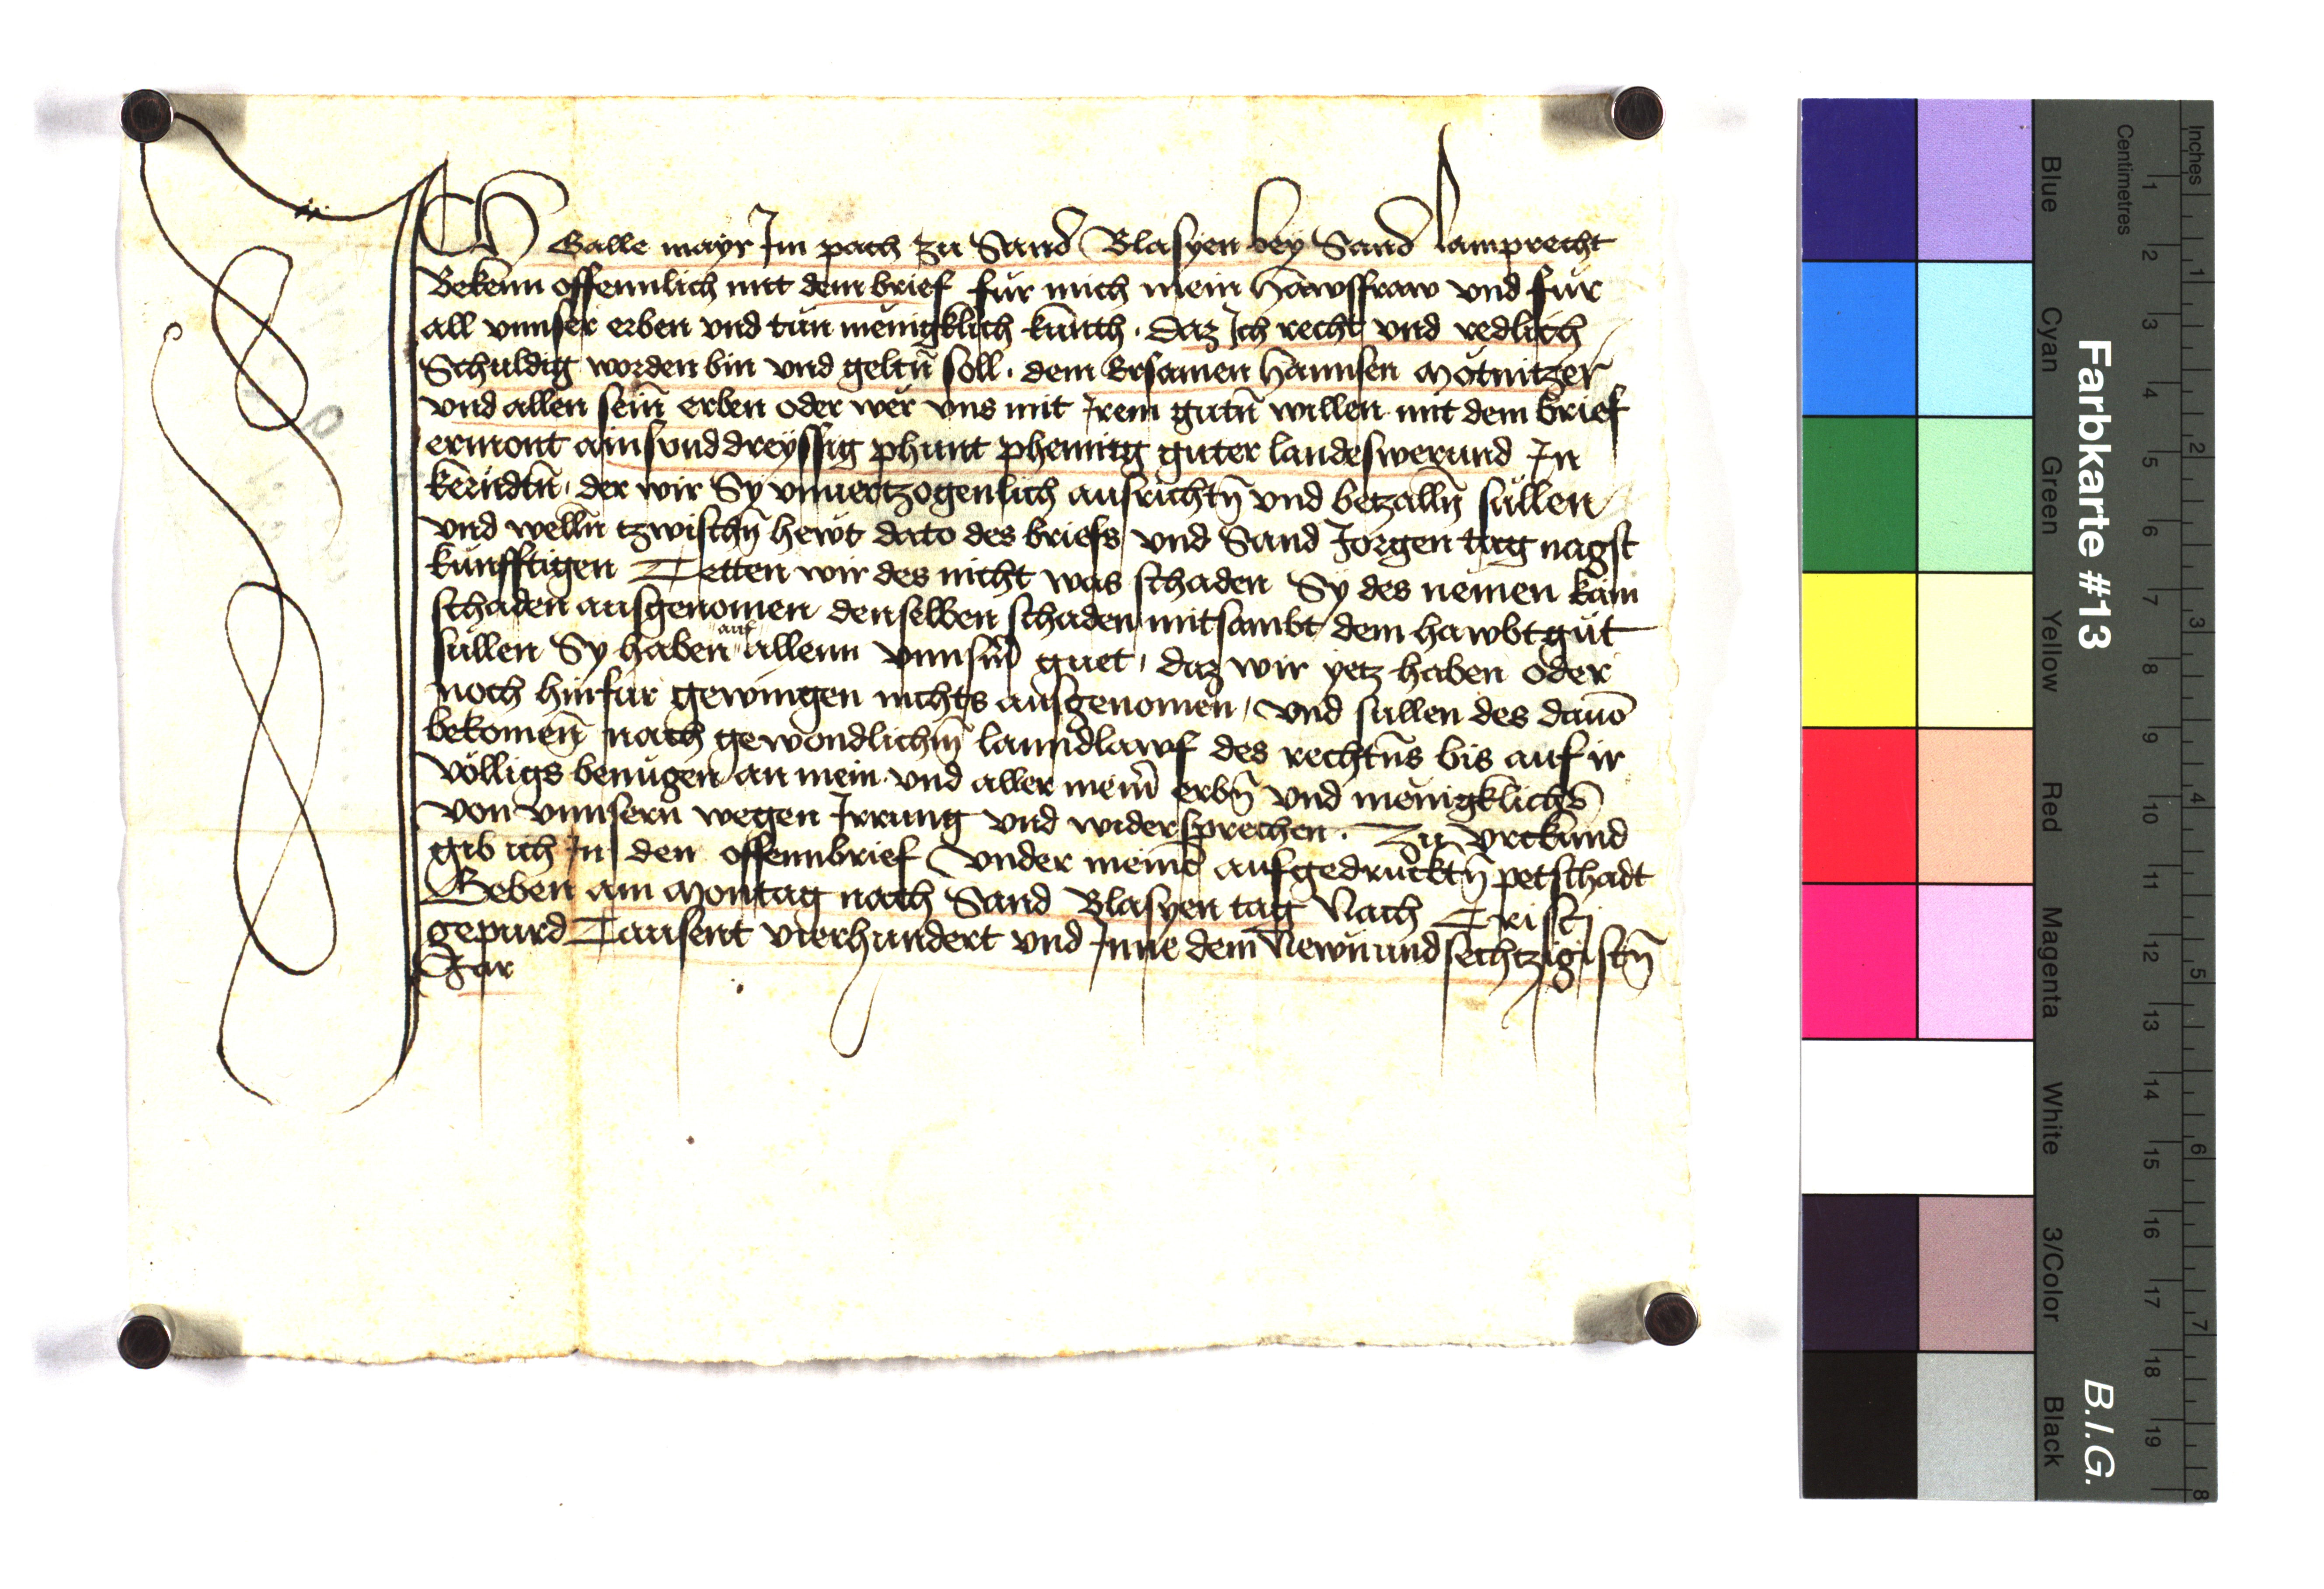 ICh Galle mayr Im pach zu Sand Blasyen bey Sand lamprecht
Bekenn offennlich mit dem brief für mich mein hawsfraw vnd für
all vnnser erben vnd tun menigklich kunth. daz Ich recht vnd redlich
Schuldig worden bin vnd geltn̄ soll. dem Ersamen hannsen Motnitzer
vnd allen sein̄ erben oder wer vns mit Irem gutn̄ willen mit dem brief
ermont ainsvnddreyssig phunt phenning guter landeswerund In
kerndtn̄. der wir Sy vnuertzogenlich ausrichtn̄ vnd betzalln̄ sullen
vnd welln̄ tzwischn̄ hewt dato des briefs vnd Sand Jorgen tag nagst
kunfftigen Tetten wir des nicht was schaden Sy des nemen kain
schaden ausgenomen denselben schaden mitsambt dem hawbtgut
sullen Sy haben auf allenn vnnserm guet, daz wir yetz haben oder
noch hinfur gewingen nichts ausgenomen, vnd sullen des dauō
bekomen̄ nach gewondlichm̄ lanndlawf des rechtn̄s bis auf ir
volligs benugen an mein vnd aller meinr erbn̄ vnd menigklichs
von vnnsern wegen Irrung vnd widersprechen. Zu vrkund
gib ich In den offennbrief vnder meinē aufgedrucktn̄ petschadt
Geben am Montag nach Sand Blasyen tag Nach Cristj
gepurd Tausent vierhundert vnd Inne dem Newnundsechtzigistn̄
Jar
Farbkarte #13
B.I.G.
Inches
Centimetres
1 2 3 4 5 6 7 8
1 2 3 4 5 6 7 8 9 10 11 12 13 14 15 16 17 18 19
Blue
Cyan
Green
Yellow
Red
Magenta
White
3/Color
Black